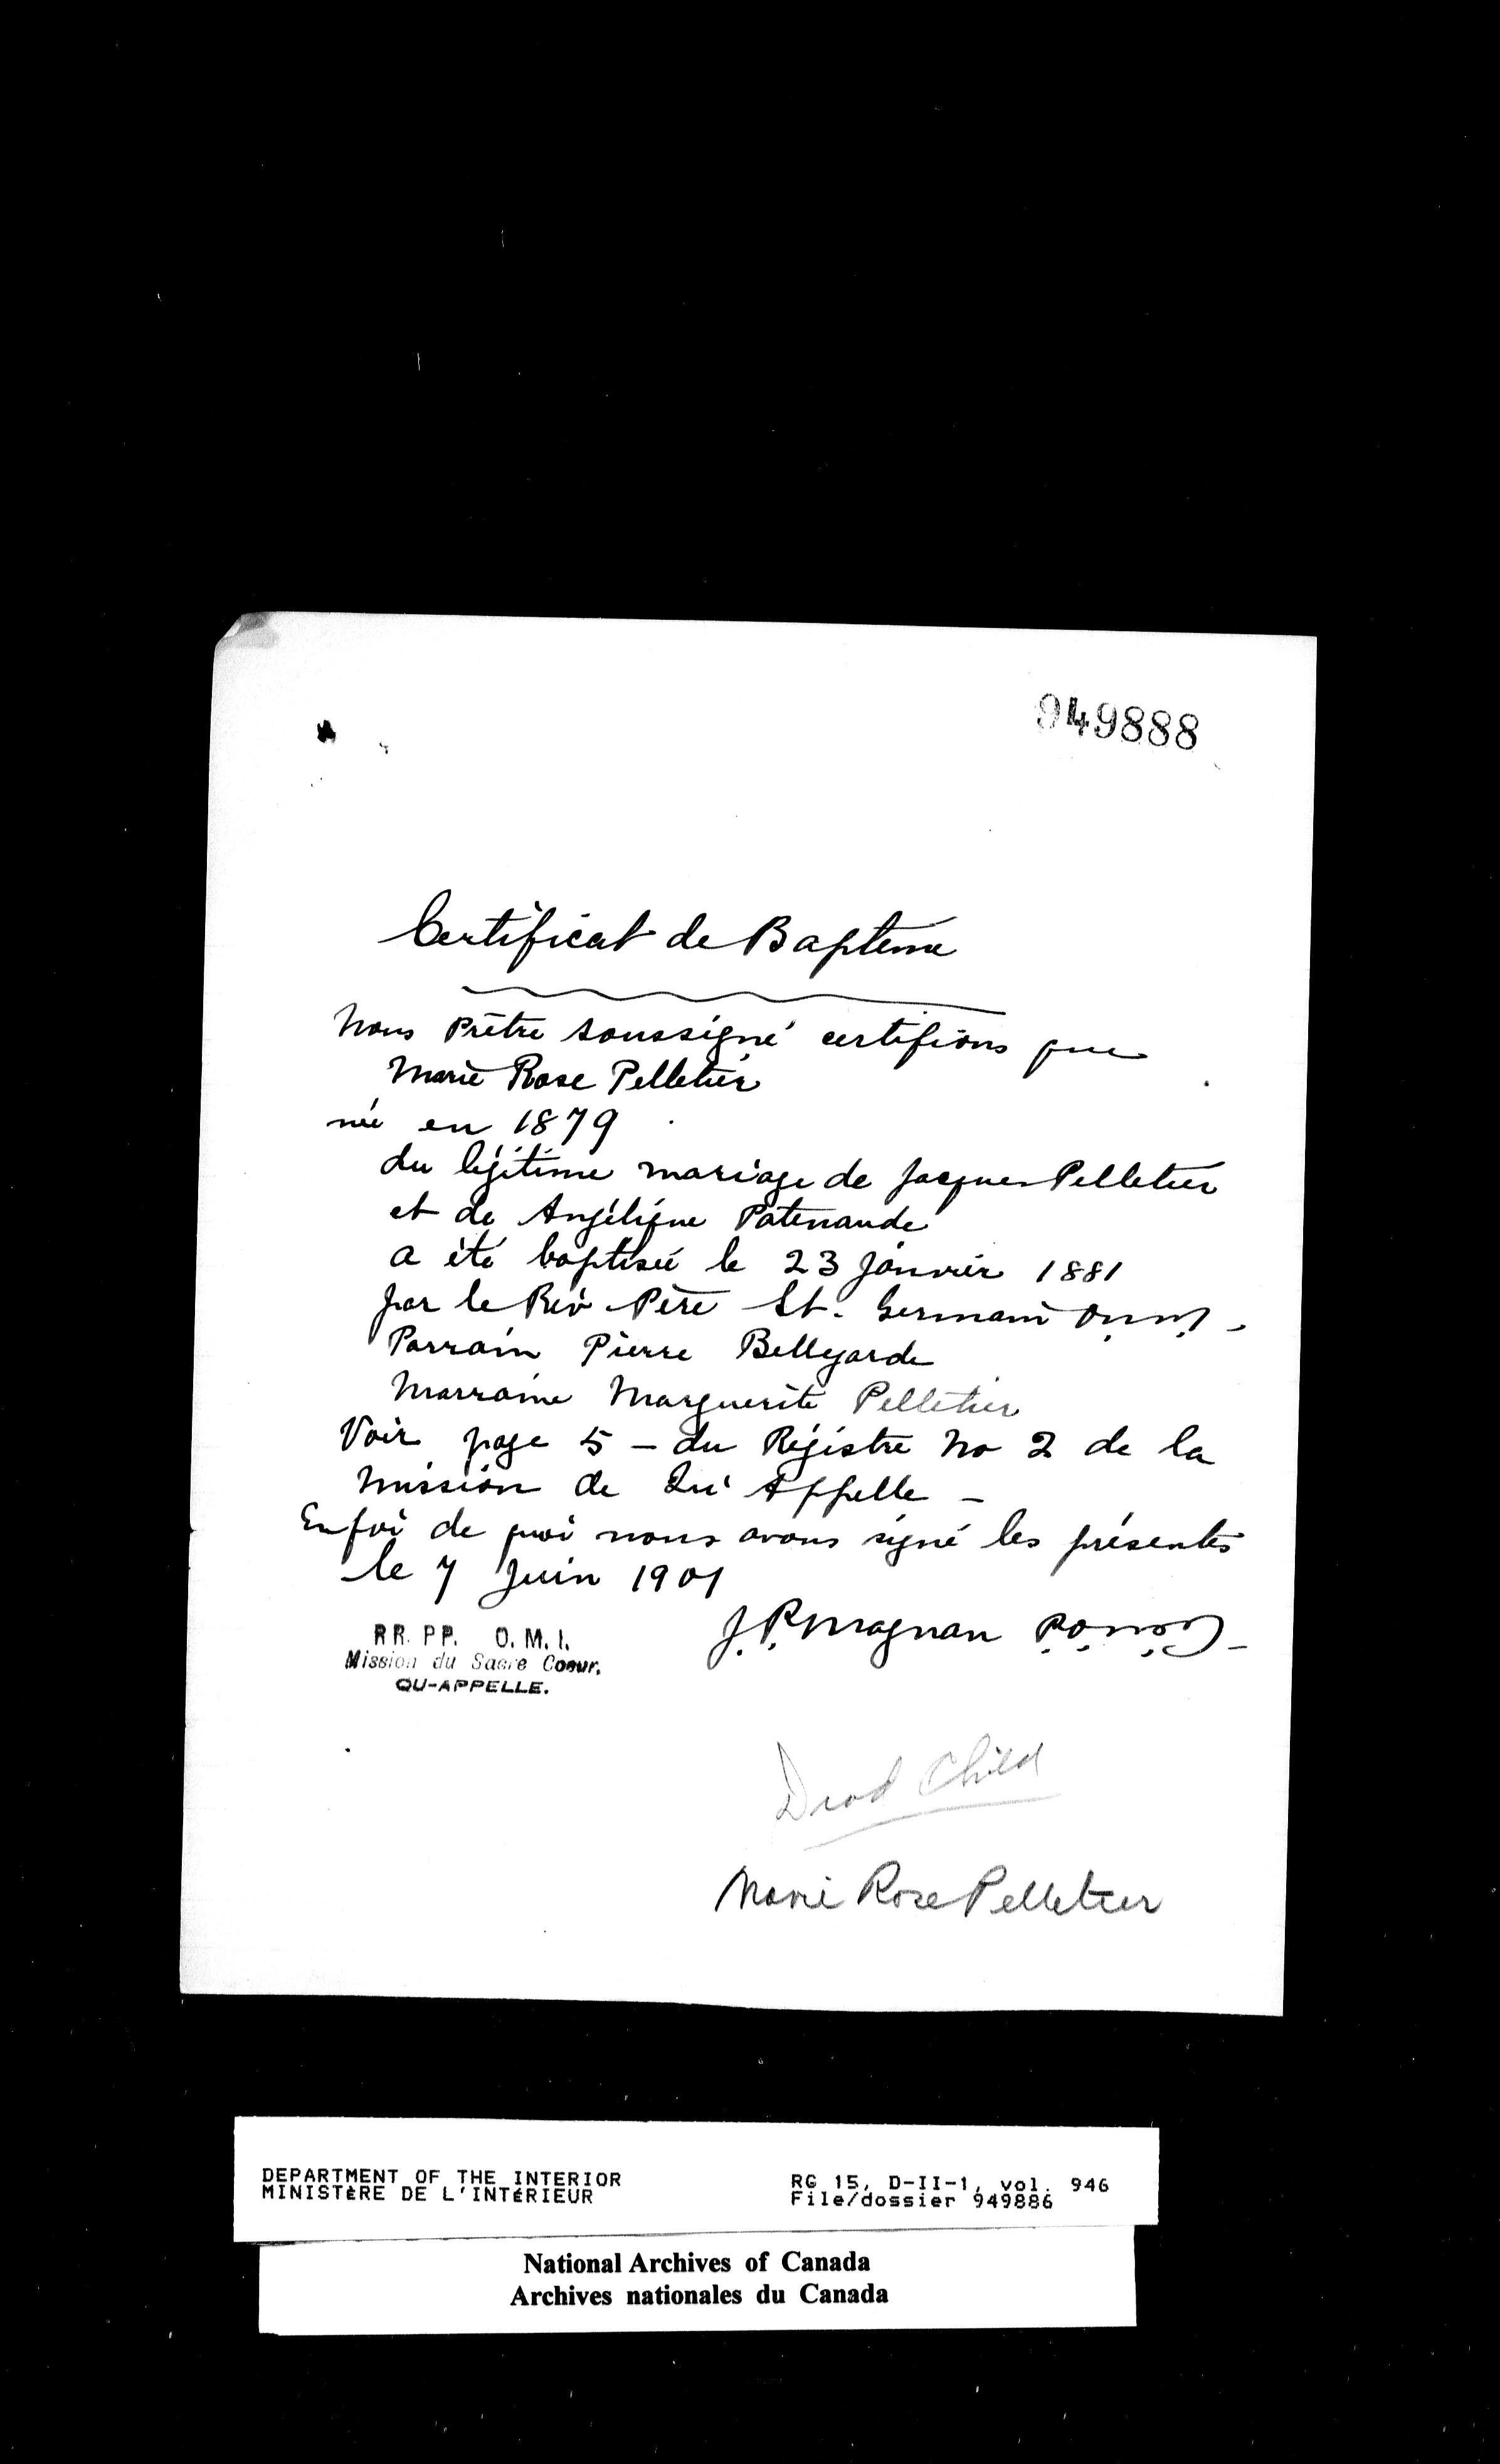 949888
Certificat de Baptême
Nous Prêtre soussigné certifions que
Marie Rose Pelletier
née en 1879
du légitime mariage de Jacques Pelletier
et de Angélique Patenaude
a été baptisée le 23 Janvier 1881
par le Rév Père St. Germain O.M.I.
Parrain Pierre Bellegarde
Marraine Marguerite Pelletier
Voir page 5 - du Régistre No 2 de la
Mission de Qu'Appelle -
En foi de quoi nous avons signé les présentes
le 7 Juin 1901
J.P. Magnan P.O.M.I.
RR. PP. O. M. I.
Mission du Sacre Coeur.
QU-APPELLE.
Dead Child
Marie Rose Pelletier
DEPARTMENT OF THE INTERIOR RG 15, D-II-1, vol. 946
MINISTÈRE DE L'INTÉRIEUR File/dossier 949886
National Archives of Canada
Archives nationales du Canada